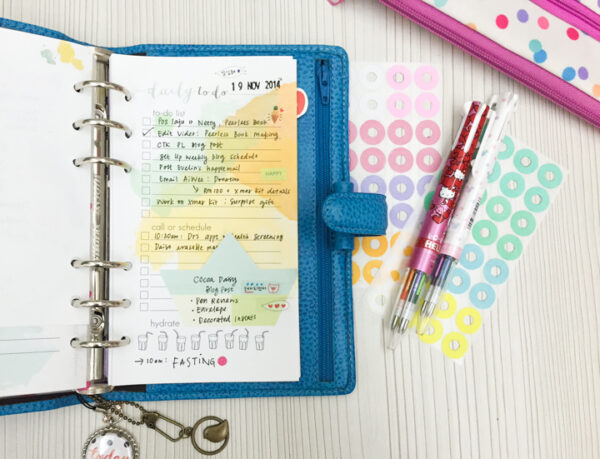 daily to do
19 NOV 2014
to-do list
Pos Lafa → Netty, Peerless Book
✓ Edit Video: Peerless Book Making
CTK PL Blog Post
Set Up Weekly blog schedule
Post Evelin's happymail
Email Aivies: Donation
↳ RM 100 + Xmas Kit details
Work on Xmas Kit: Surprise gift
HAPPY
call or schedule
10:10am: Drs appt → Health Screening
Daisy available
Cocoa Daisy
Blog Post
• Pen Reviews
• Envelope
• Decorated Indexes
hydrate
→ 10am: FASTING